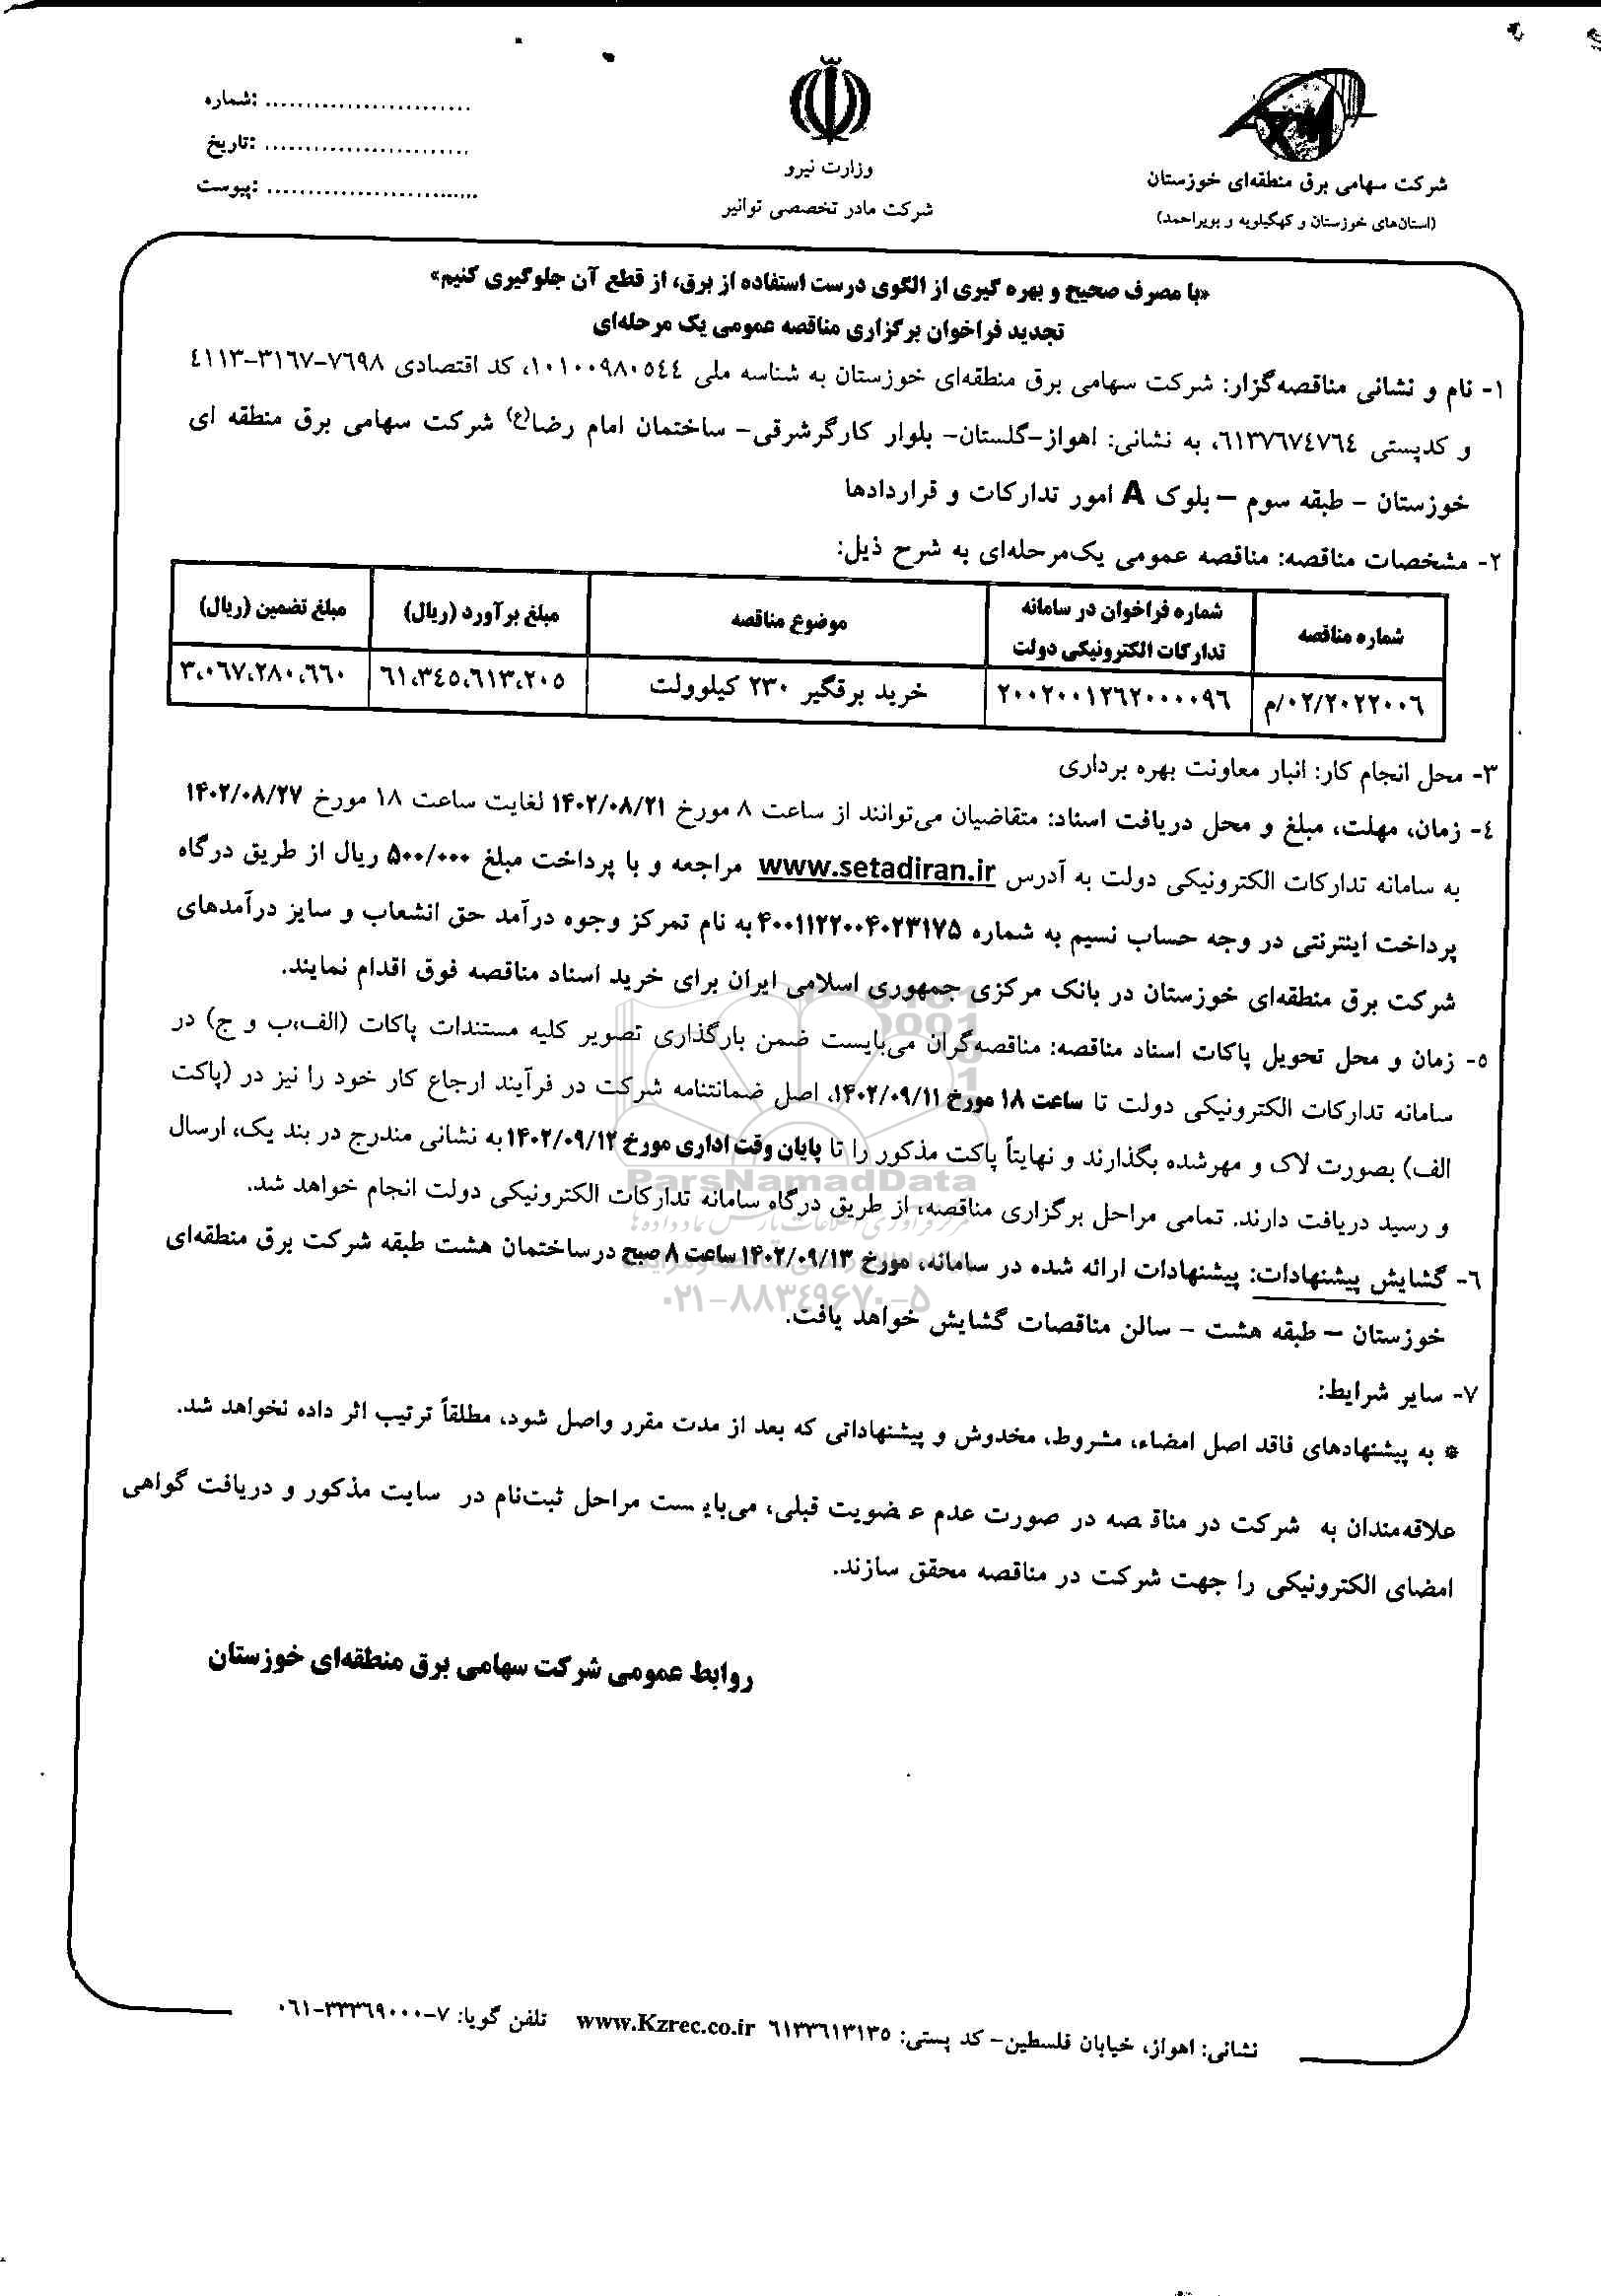 شماره: ..........................
تاریخ: ..........................
پیوست: ..........................
وزارت نیرو
شرکت مادر تخصصی توانیر
شرکت سهامی برق منطقه‌ای خوزستان
(استان‌های خوزستان و کهگیلویه و بویراحمد)
«با مصرف صحیح و بهره گیری از الگوی درست استفاده از برق، از قطع آن جلوگیری کنیم»
تجدید فراخوان برگزاری مناقصه عمومی یک مرحله‌ای
۱- نام و نشانی مناقصه‌گزار: شرکت سهامی برق منطقه‌ای خوزستان به شناسه ملی ۱۰۱۰۰۹۸۰۵٤٤، کد اقتصادی ۷٦۹۸-۳۱٦۷-٤۱۱۳
و کدپستی ٦۱۳۷٦۷٤۷٦٤، به نشانی: اهواز-گلستان- بلوار کارگرشرقی- ساختمان امام رضا(ع) شرکت سهامی برق منطقه ای
خوزستان - طبقه سوم – بلوک A امور تدارکات و قراردادها
۲- مشخصات مناقصه: مناقصه عمومی یک‌مرحله‌ای به شرح ذیل:
شماره مناقصه
شماره فراخوان در سامانه
تدارکات الکترونیکی دولت
موضوع مناقصه
مبلغ برآورد (ریال)
مبلغ تضمین (ریال)
۰۲/۲۰۲۲۰۰٦/م
۲۰۰۲۰۰۱۲٦۲۰۰۰۰۹٦
خرید برقگیر ۲۳۰ کیلوولت
٦۱،۳٤۵،٦۱۳،۲۰۵
۳،۰٦۷،۲۸۰،٦٦۰
۳- محل انجام کار: انبار معاونت بهره برداری
٤- زمان، مهلت، مبلغ و محل دریافت اسناد: متقاضیان می‌توانند از ساعت ۸ مورخ ۱۴۰۲/۰۸/۲۱ لغایت ساعت ۱۸ مورخ ۱۴۰۲/۰۸/۲۷
به سامانه تدارکات الکترونیکی دولت به آدرس www.setadiran.ir مراجعه و با پرداخت مبلغ ۵۰۰/۰۰۰ ریال از طریق درگاه
پرداخت اینترنتی در وجه حساب نسیم به شماره ۴۰۰۱۱۲۲۰۰۴۰۲۳۱۷۵ به نام تمرکز وجوه درآمد حق انشعاب و سایز درآمدهای
شرکت برق منطقه‌ای خوزستان در بانک مرکزی جمهوری اسلامی ایران برای خرید اسناد مناقصه فوق اقدام نمایند.
۵- زمان و محل تحویل پاکات اسناد مناقصه: مناقصه‌گران می‌بایست ضمن بارگذاری تصویر کلیه مستندات پاکات (الف،ب و ج) در
سامانه تدارکات الکترونیکی دولت تا ساعت ۱۸ مورخ ۱۴۰۲/۰۹/۱۱، اصل ضمانتنامه شرکت در فرآیند ارجاع کار خود را نیز در (پاکت
الف) بصورت لاک و مهرشده بگذارند و نهایتاً پاکت مذکور را تا پایان وقت اداری مورخ ۱۴۰۲/۰۹/۱۲ به نشانی مندرج در بند یک، ارسال
و رسید دریافت دارند. تمامی مراحل برگزاری مناقصه، از طریق درگاه سامانه تدارکات الکترونیکی دولت انجام خواهد شد.
٦- گشایش پیشنهادات: پیشنهادات ارائه شده در سامانه، مورخ ۱۴۰۲/۰۹/۱۳ ساعت ۸ صبح درساختمان هشت طبقه شرکت برق منطقه‌ای
خوزستان – طبقه هشت - سالن مناقصات گشایش خواهد یافت.
۷- سایر شرایط:
* به پیشنهادهای فاقد اصل امضاء، مشروط، مخدوش و پیشنهاداتی که بعد از مدت مقرر واصل شود، مطلقاً ترتیب اثر داده نخواهد شد.
علاقه‌مندان به شرکت در مناقصه در صورت عدم عضویت قبلی، می‌بایست مراحل ثبت‌نام در سایت مذکور و دریافت گواهی
امضای الکترونیکی را جهت شرکت در مناقصه محقق سازند.
روابط عمومی شرکت سهامی برق منطقه‌ای خوزستان
ParsNamadData
۰۲۱-۸۸۳٤۹٦۷۰-۵
نشانی: اهواز، خیابان فلسطین- کد پستی: ٦۱۳۳٦۱۳۱۳۵ www.Kzrec.co.ir تلفن گویا: ۷-۰٦۱-۳۳۳٦۹۰۰۰